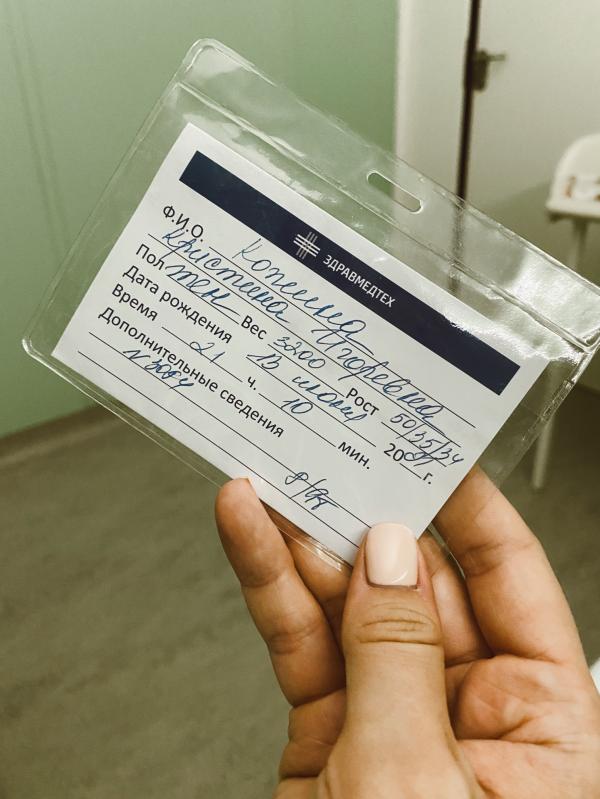 ЗДРАВМЕДТЕХ
Ф.И.О. Копина
Кристина Игоревна
Пол жен Вес 3200 Рост 50/35/34
Дата рождения 13 июня 20 г.
Время 21 ч. 10 мин.
Дополнительные сведения